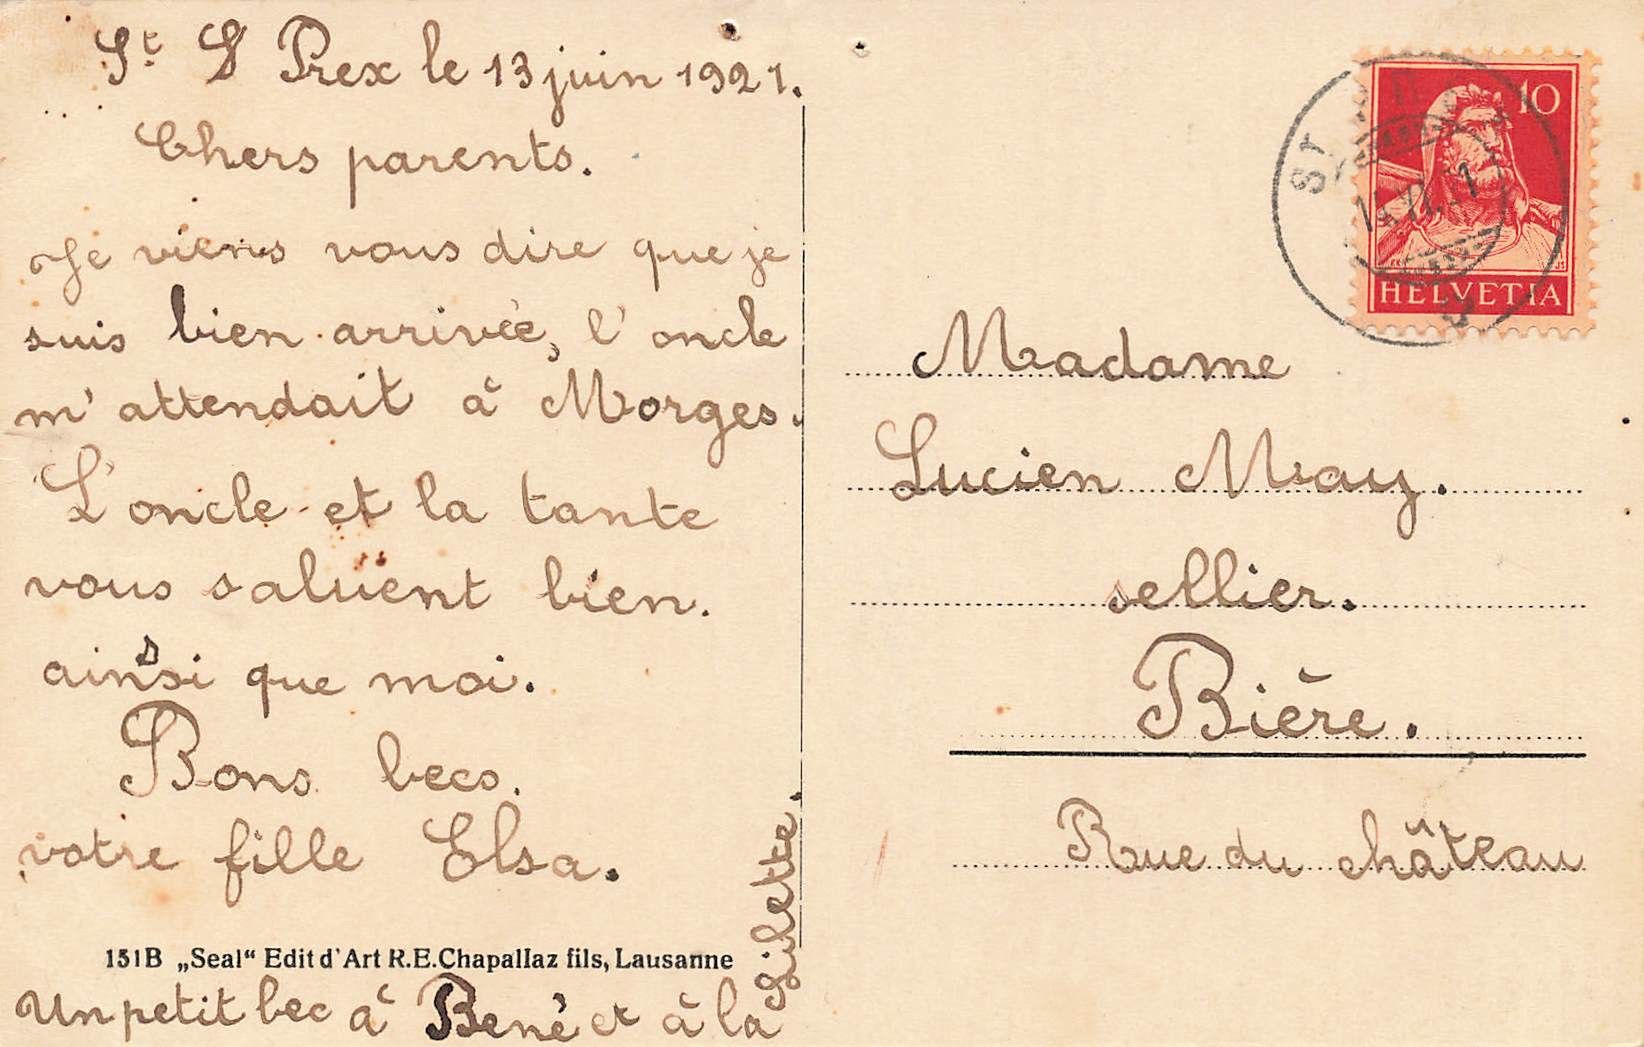 St S Prex le 13 juin 1921.
Chers parents.
Je viens vous dire que je
suis bien arrivée, l'oncle
m'attendait à Morges.
L'oncle et la tante
vous saluent bien.
ainsi que moi.
Bons becs.
votre fille Elsa.
151B „Seal“ Edit d'Art R.E.Chapallaz fils, Lausanne
Un petit bec à Bené et à la
Gilette.
10
HELVETIA
Madame
Lucien May.
sellier.
Bière.
Rue du château